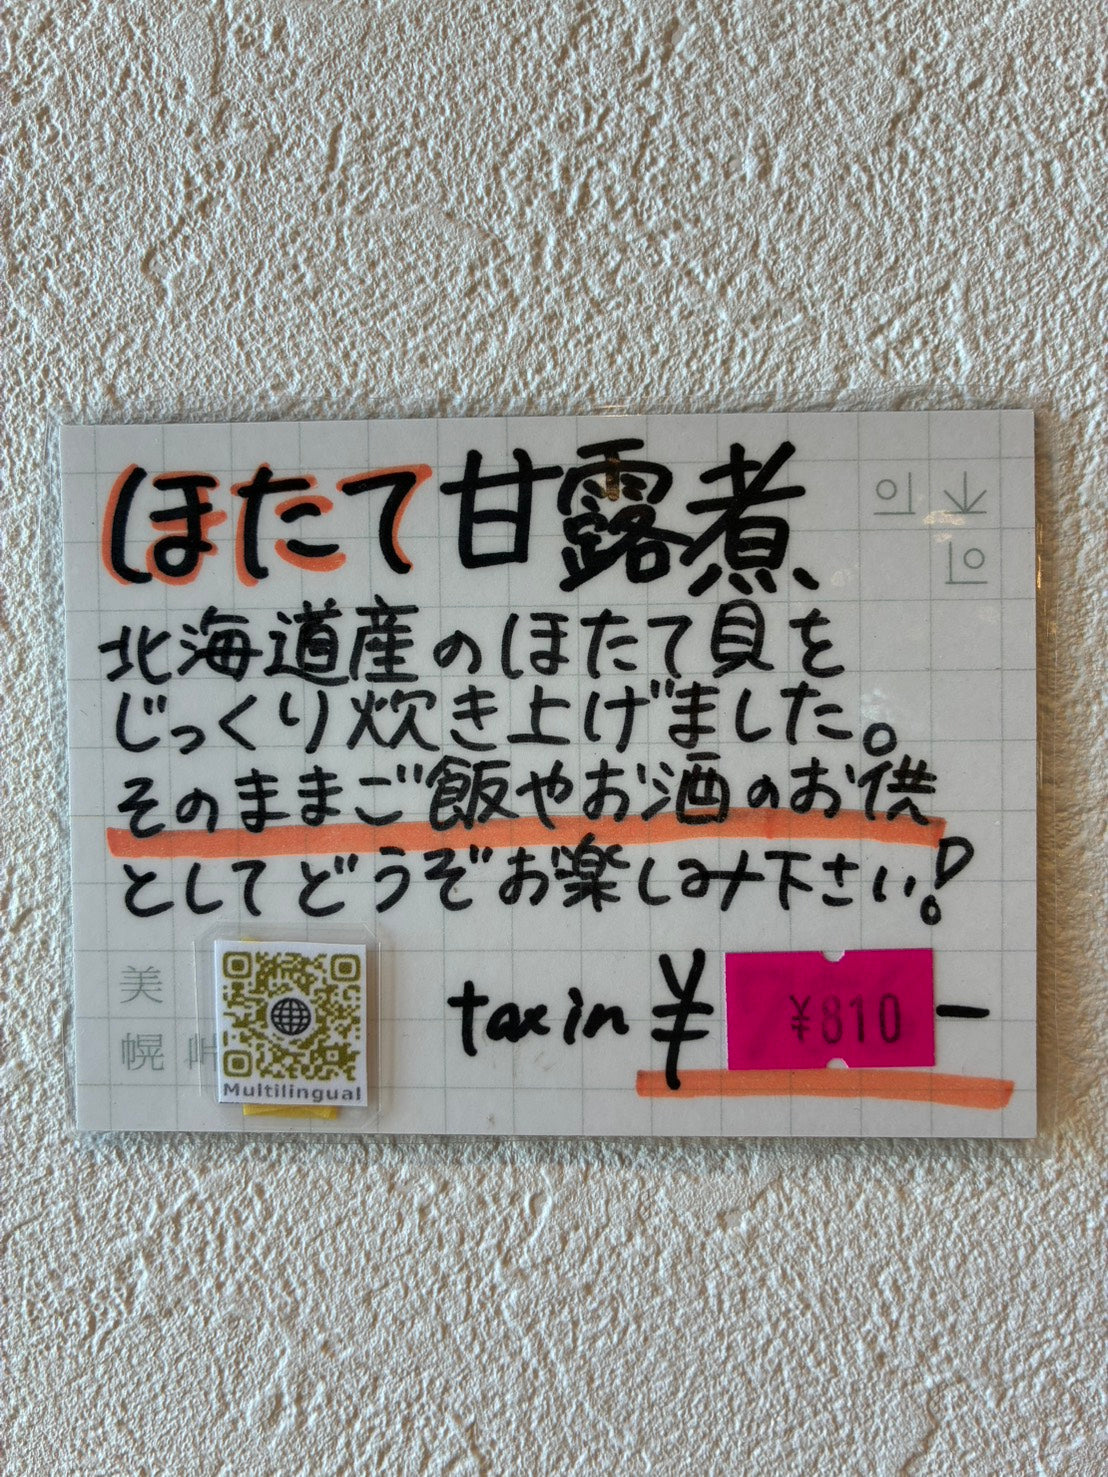 ほたて甘露煮
北海道産のほたて貝を
じっくり炊き上げました。
そのままご飯やお酒のお供
としてどうぞお楽しみ下さい!
美
幌 峠
Multilingual
tax in ¥ ¥810 ー